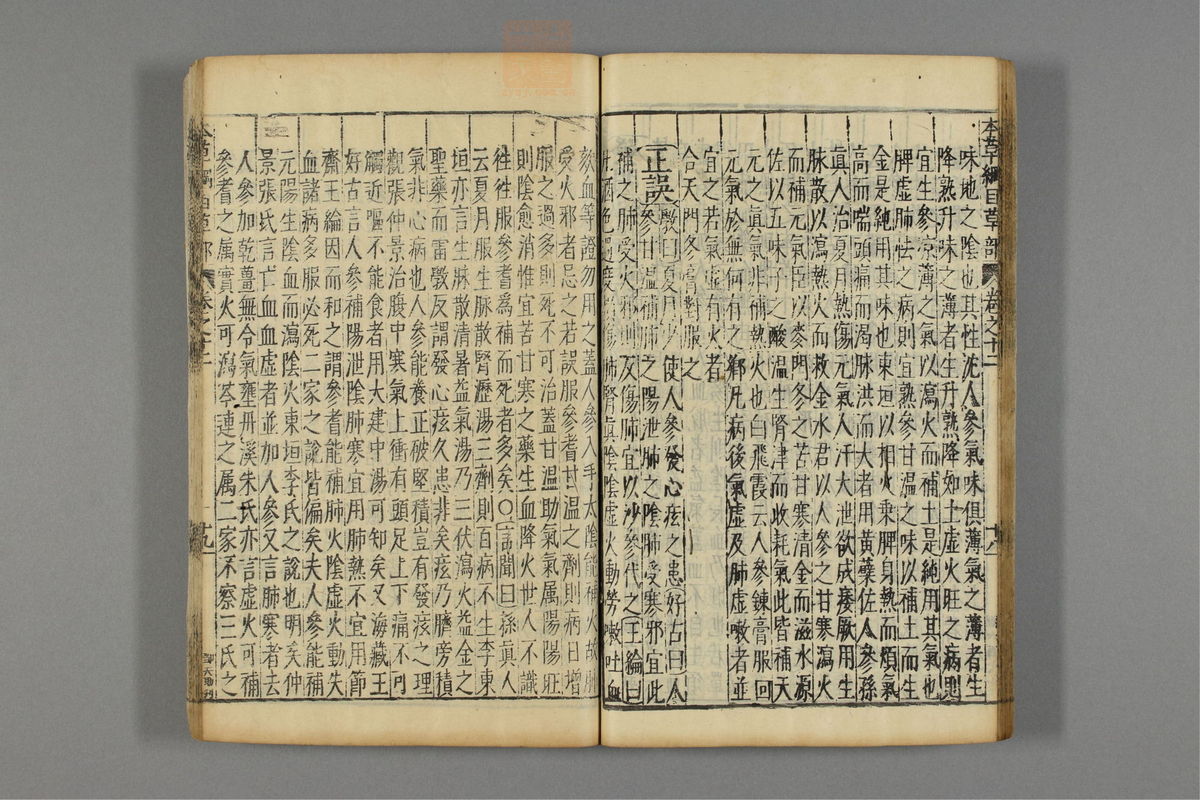 本草綱目草部 卷之十二 十八
味地之陰也其性沈人參氣味俱薄氣之薄者生
降熟升味之薄者生升熟降如土虛火旺之病則
宜生參涼薄之氣以瀉火而補土是純用其氣也
脾虛肺怯之病則宜熟參甘溫之味以補土而生
金是純用其味也東垣以相火乘脾身熱而煩氣
高而喘頭痛而渴脉洪而大者用黃蘗佐人參孫
眞人治夏月熱傷元氣人汗大泄欲成痿厥用生
脉散以瀉熱火而救金水君以人參之甘寒瀉火
而補元氣臣以麥門冬之苦甘寒清金而滋水源
佐以五味子之酸溫生腎津而收耗氣此皆補天
元之眞氣非補熱火也白飛霞云人參鍊膏服回
元氣於無何有之鄉凡病後氣虛及肺虛嗽者並
宜之若氣虛有火者
合天門冬膏對服之
正誤 斆曰夏月少使人參發心痃之患好古曰人
參甘溫補肺之陽泄肺之陰肺受寒邪宜此
補之肺受火邪則反傷肺宜以沙參代之王綸曰
酒色過度損傷肺腎眞陰陰虛火動勞嗽吐血
欬血等證勿用之蓋人參入手太陰能補火故肺
受火邪者忌之若誤服參耆甘溫之劑則病日增
服之過多則死不可治蓋甘溫助氣氣属陽陽旺
則陰愈消惟宜苦甘寒之藥生血降火世人不識
徃徃服參耆爲補而死者多矣〇言聞曰孫眞人
云夏月服生脉散腎瀝湯三劑則百病不生李東
垣亦言生脉散清暑益氣湯乃三伏瀉火益金之
聖藥而雷斆反謂發心痃久患非矣痃乃臍旁積
氣非心病也人參能養正破堅積豈有發痃之理
觀張仲景治腹中寒氣上衝有頭足上下痛不可
觸近嘔不能食者用大建中湯可知矣又海藏王
好古言人參補陽泄陰肺寒宜用肺熱不宜用節
齋王綸因而和之謂參耆能補肺火陰虛火動失
血諸病多服必死二家之說皆偏矣夫人參能補
元陽生陰血而瀉陰火東垣李氏之說也明矣仲
景張氏言亡血血虛者並加人參又言肺寒者去
人參加乾薑無令氣壅丹溪朱氏亦言虛火可補
參耆之属實火可瀉芩連之属二家不察三氏之
卷之十二 十九